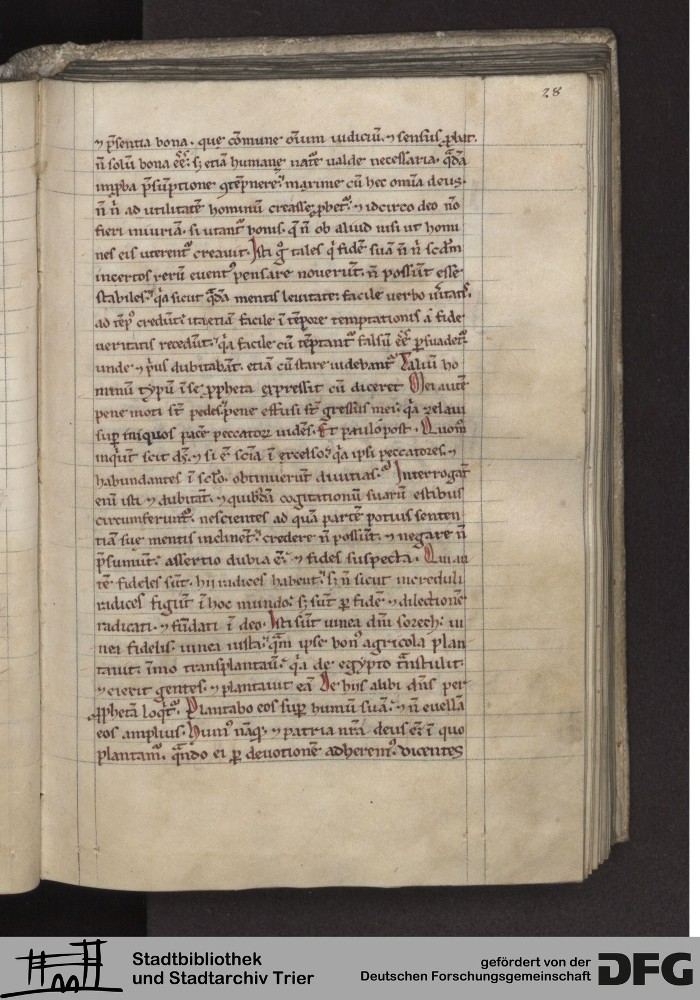 28
⁊ p̄sentia bona. que cōmune om̄ium iudiciū. ⁊ sensus ꝓbat.
n̄ solū bona eē. sꝫ etiā humane nat᷑e ualde necessaria. q̄dā
inꝓba p̄sūptione ꝯtēpnere. maxime cū hec omīa deus.
n̄ n̓ ad utilitatē hominū creasse ꝓbet᷑. ⁊ idcirco deo n̄o
fieri iniuriā. si utant᷑ bonis. q̄ n̄ ob aliud nisi ut homi
nes eis uterent᷑ creauit. Isti g̊ tales q̓ fidē suā n̄ n̓ scd̄m
incertos rerū euent᷒ pensare nouerūt. n̄ possūt esse
stabiles. q̓a sicut q̄dā mentis leuitate facile uerbo
ad tēp᷒ credūt. ita etiā facile ī tēpore temptationis a fide
ueritatis recedūt. q̓a facile cū tēptant᷑ falsū eē ꝑsuadet᷑
unde ⁊ p̓us dubitabāt. etiā cū stare uidebant᷑. Taliū ho
minū typū ī se ꝓpheta expressit cū diceret. Mei autē
pene moti st̄ pedes. pene effusi st̄ gressus mei. q̓a zelaui
suꝑ iniquos pacē peccatoꝝ uidēs. Et paulo post. Quom̄
inq̓ūt scit dꝰ. ⁊ si ē scīa ī excelso. q̓a ipsi peccatores. ⁊
habundantes ī sclo. obtinuerūt diuitias. Interrogāt
enī isti ⁊ dubitāt. ⁊ quibꝰdā cogitationū suarū estibus
circumferunt᷑. nescientes ad quā partē potius senten
tiā sue mentis inclinēt. credere n̄ possūt. ⁊ negare n̄
p̄sumūt. assertio dubia ē. ⁊ fides suspecta. Qui au
tē fideles sūt. hii radices habent. sꝫ n̄ sicut increduli
radices figūt ī hoc mundo. sꝫ sūt ꝑ fidē ⁊ dilectionē
radicati. ⁊ fūdati ī deo. Isti sūt uinea dn̄i sorech. ui
nea fidelis. uinea iusta. quā ipse bon᷒ agricola plan
tauit. īmo transplantauit. q̓a de egypto t̄nstulit.
⁊ eiecit gentes. ⁊ plantauit eā. De hiis alibi dn̄s per
ꝓphetā loq̓t᷑. Plantabo eos suꝑ humū suā. ⁊ n̄ euellā
eos amplius. Hum᷒ nāqꝫ ⁊ patria nr̄a deus ē. ī quo
plantam᷑. qn̄do ei ꝑ deuotionē adherem᷒. dicentes
Stadtbibliothek
und Stadtarchiv Trier
gefördert von der
Deutschen Forschungsgemeinschaft
DFG